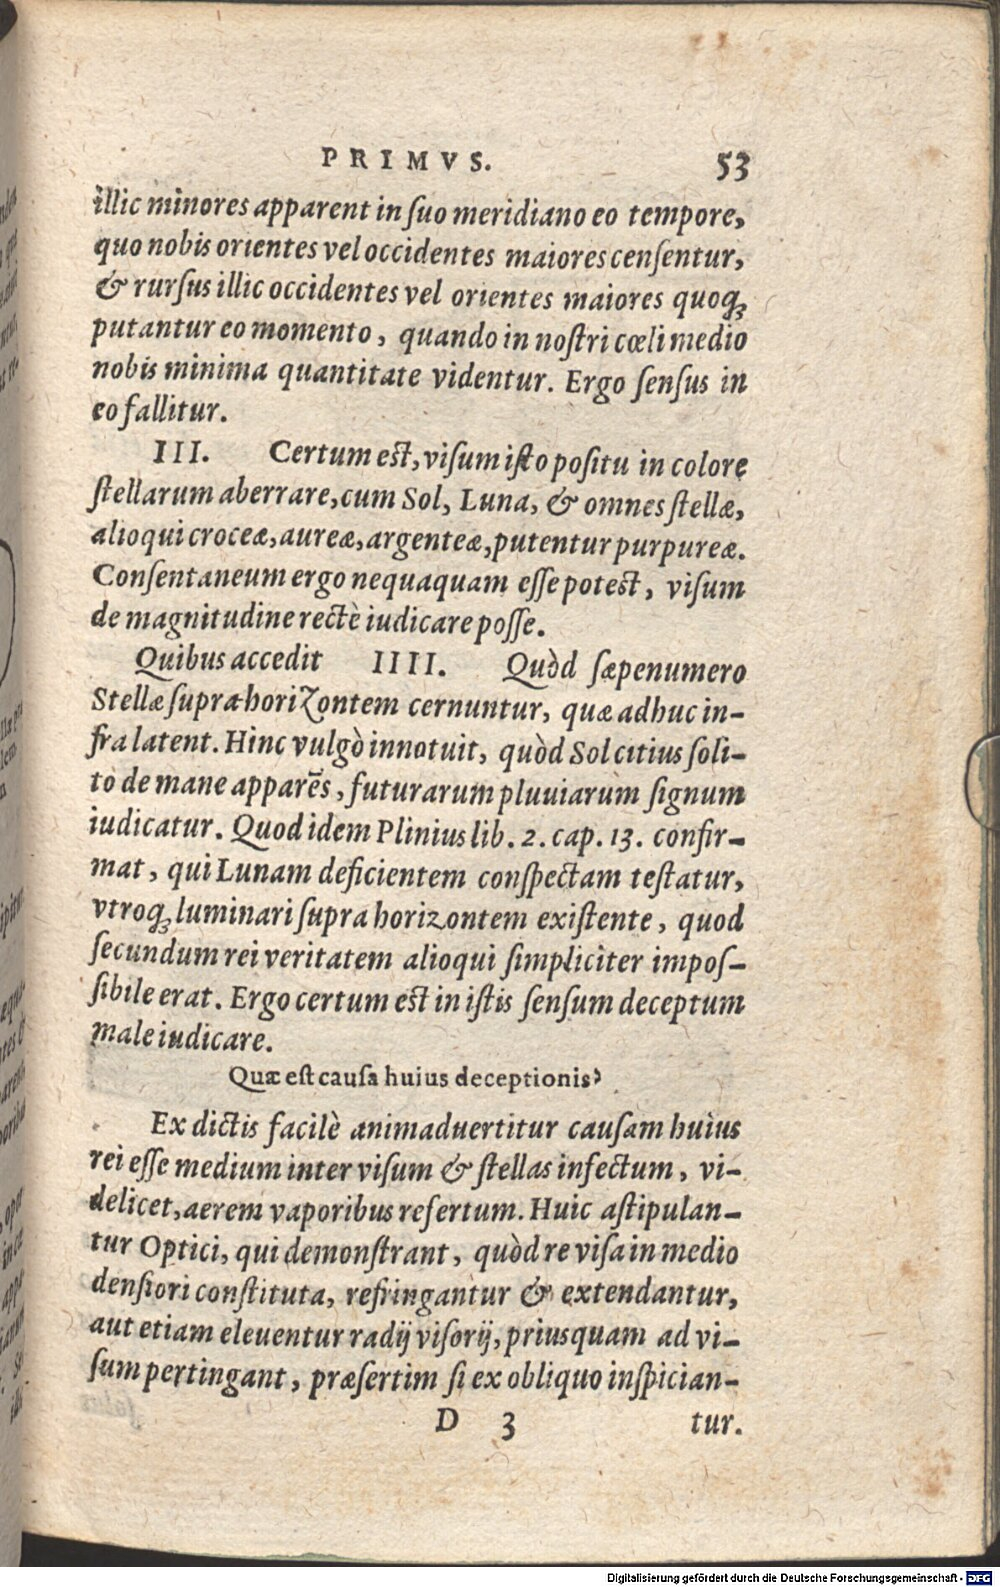 PRIMVS. 53
illic minores apparent in ſuo meridiano eo tempore,
quo nobis orientes vel occidentes maiores cenſentur,
& rurſus illic occidentes vel orientes maiores quoq;
putantur eo momento, quando in noſtri cœli medio
nobis minima quantitate videntur. Ergo ſenſus in
eo fallitur.
III. Certum eſt, viſum iſto poſitu in colore
ſtellarum aberrare, cum Sol, Luna, & omnes ſtellæ,
alioqui croceæ, aureæ, argenteæ, putentur purpureæ.
Conſentaneum ergo nequaquam eſſe poteſt, viſum
de magnitudine rectè iudicare poſſe.
Quibus accedit IIII. Quòd ſæpenumero
Stellæ ſupra horizontem cernuntur, quæ adhuc in-
fra latent. Hinc vulgò innotuit, quòd Sol citius ſoli-
to de mane apparẽs, futurarum pluuiarum ſignum
iudicatur. Quod idem Plinius lib. 2. cap. 13. confir-
mat, qui Lunam deficientem conſpectam teſtatur,
vtroq; luminari ſupra horizontem exiſtente, quod
ſecundum rei veritatem alioqui ſimpliciter impoſ-
ſibile erat. Ergo certum eſt in iſtis ſenſum deceptum
male iudicare.
Quæ eſt cauſa huius deceptionis?
Ex dictis facilè animaduertitur cauſam huius
rei eſſe medium inter viſum & ſtellas infectum, vi-
delicet, aerem vaporibus refertum. Huic aſtipulan-
tur Optici, qui demonſtrant, quòd re viſa in medio
denſiori conſtituta, refringantur & extendantur,
aut etiam eleuentur radij viſorij, priusquam ad vi-
ſum pertingant, præſertim ſi ex obliquo inſpician-
D 3 tur.
Digitalisierung gefördert durch die Deutsche Forschungsgemeinschaft - DFG